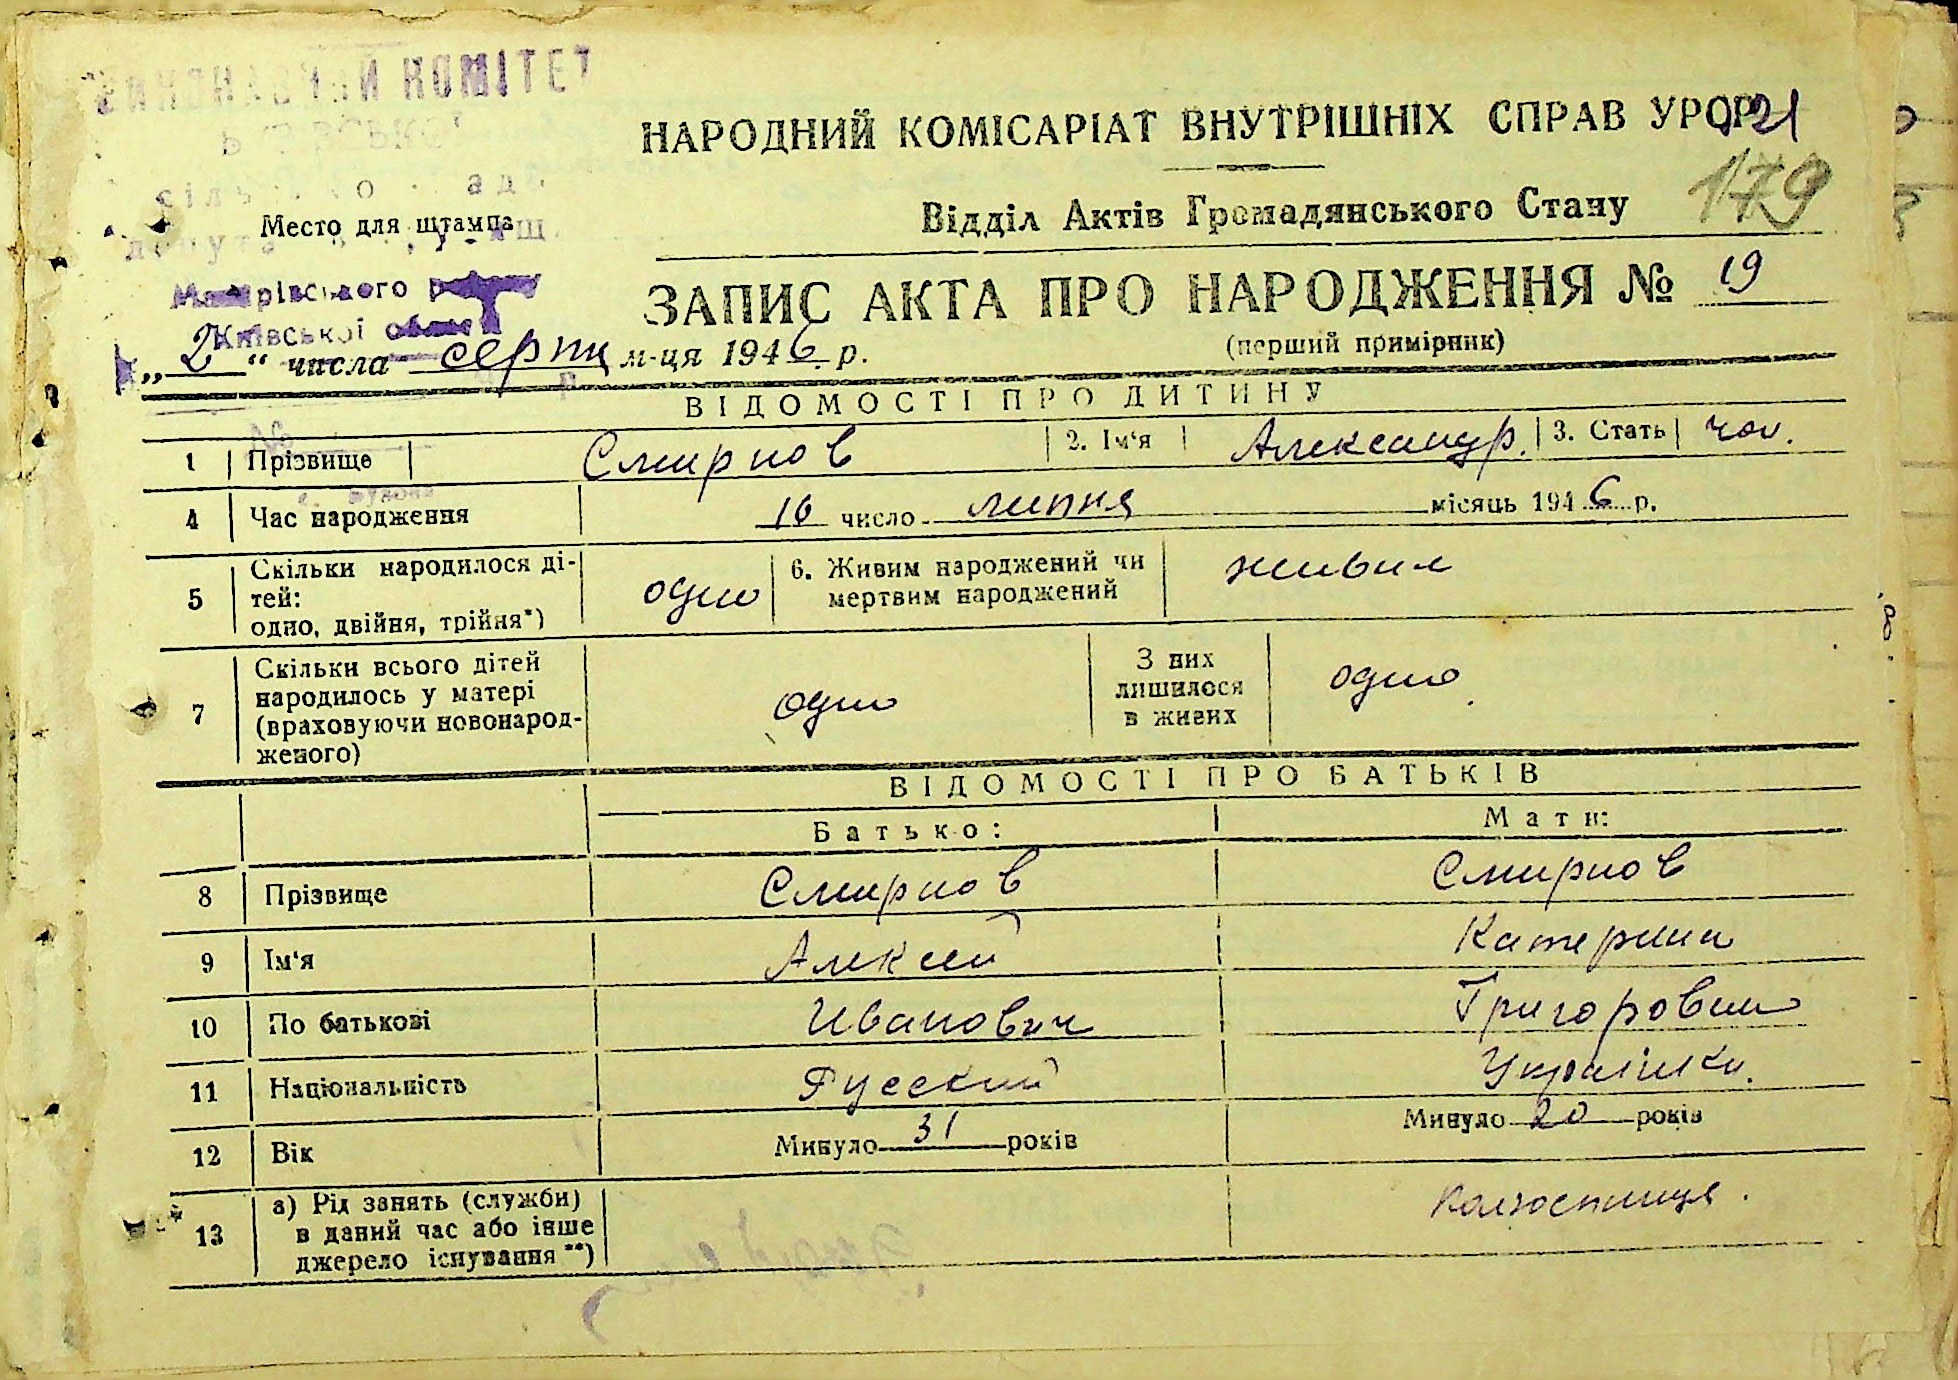 КОМІТЕТ
НАРОДНИЙ КОМІСАРІАТ ВНУТРІШНІХ СПРАВ УРСР
21
179
Відділ Актів Громадянського Стану
Место для штампа
Київської
ЗАПИС АКТА ПРО НАРОДЖЕННЯ № 19
(перший примірник)
„2“ числа серпн м-ця 1946 р.
ВІДОМОСТІ ПРО ДИТИНУ
1 Прізвище Смирнов 2. Ім'я Александр. 3. Стать чол.
4 Час народження 16 число липня місяць 1946 р.
5 Скільки народилося ді-
тей:
одно, двійня, трійня*)
одно
6. Живим народжений чи
мертвим народжений
живим
7 Скільки всього дітей
народилось у матері
(враховуючи новонарод-
женого)
одно
З них
лишилося
в живих
одно
ВІДОМОСТІ ПРО БАТЬКІВ
Батько: Мати:
8 Прізвище Смирнов Смирнов
9 Ім'я Алексей Катерина
10 По батькові Иванович Григоровна
11 Національність Русский Українка.
12 Вік Минуло 31 років Минуло 20 років
13 а) Рід занять (служби)
в даний час або інше
джерело існування**)
колгоспниця.